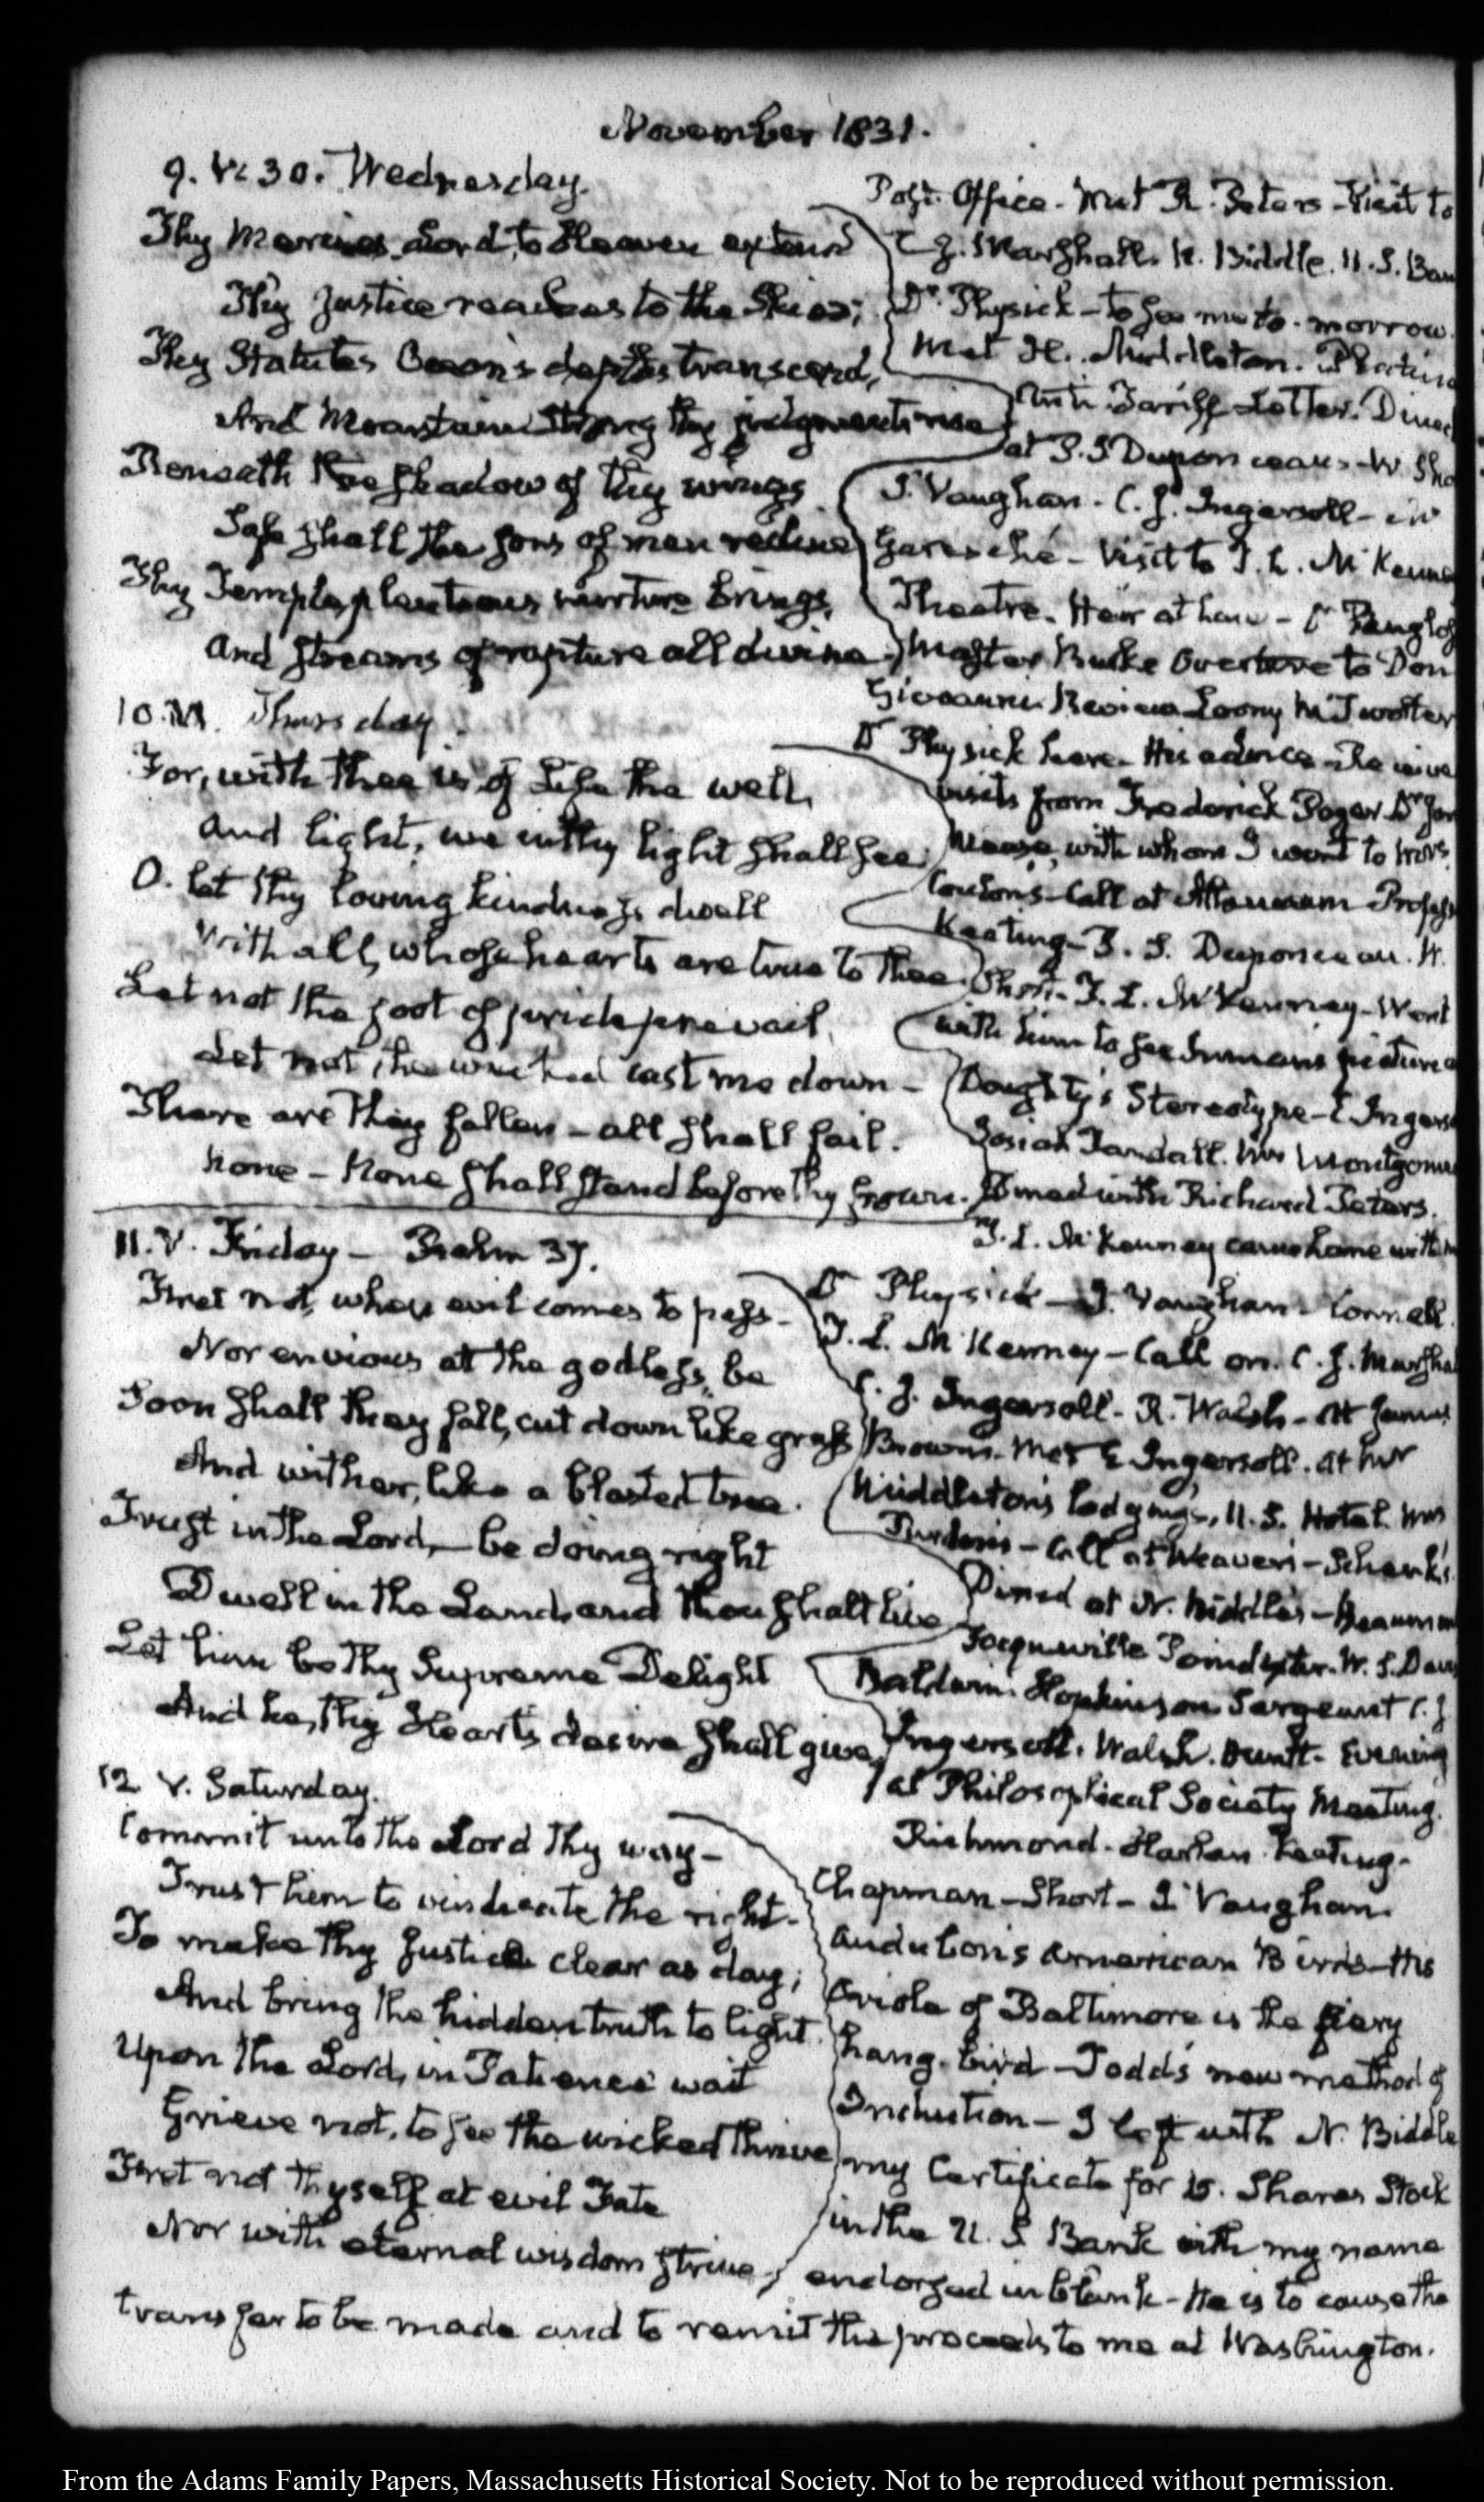 November 1831.
9. V:30. Wednesday.
Thy Mercies, Lord, to Heaven extend
Thy Justice reaches to the Skies;
Thy Statutes Ocean's depths transcend,
And Mountain Strong thy judgments rise
Beneath the shadow of thy wings
Safe shall the sons of men recline
Thy Temple, plenteous nurture brings,
And streams of rapture all divine.
Post Office. Met R. Peters - Visit to
C. J. Marshall. N. Biddle. U.S. Ban
Dr. Physick - to see me to-morrow.
Met H. Middleton.
Anti Tariff Letter. Dined
at P. S Duponceau's - W. Sho
J. Vaughan. C. J. Ingersoll -
Garesché - Visit to T. L. McKenne
Theatre. Heir at Law - Dr Panglos
Master Burke Overture to Don
Giovanni Review Loony McTwolter
10. VI. Thursday.
For, with thee is of Life the well,
And light, we in thy light shall see.
O. let thy loving kindness dwell
With all, whose hearts are true to Thee.
Let not the foot of pride prevail,
Let not the wicked cast me down -
There are they fallen - all shall fail.
None - None shall stand before thy frown.
Dr Physick here. His advice
visits from Frederick
Mease, with whom I went to Mrs
Call at Athenaeum Profess
Keating - P. S. Duponceau. W.
Short. T. L. McKenney - Went
with him to see Inman's picture
Doughty's Stereotype - E Ingers
Josiah Randall. Mrs Montgome
Dined with Richard Peters.
T. L. McKenney came home with
11. V. Friday - Psalm 37.
Fret not, when evil comes to pass -
Nor envious at the godless, be
Soon shall they fall, cut down like grass
And wither, like a blasted tree.
Trust in the Lord, - be doing right
Dwell in the Land, and thou shalt live
Let him be thy Supreme Delight
And he, thy Hearts desire shall give,
Dr Physick - J. Vaughan - Connell.
T. L. McKenney - Call on. C. J. Marsha
C. J. Ingersoll - R. Walsh - At James
Brown's. Met E Ingersoll. at Mr
Middleton's lodgings, U.S. Hotel. Mrs
Call at Weaver's - Schenk's
Dined at N. Biddle's - Beaumon
Tocqueville Poindexter. W. S. Davi
Baldwin. Hopkinson Sergeant C. J
Ingersoll. Walsh. Evening
at Philosophical Society Meeting.
12 V. Saturday.
Commit unto the Lord thy way -
Trust him to vindicate the right -
To make thy Justice clear as day;
And bring the hidden truth to light.
Upon the Lord, in Patience wait
Grieve not, to see the wicked thrive
Fret not thyself at evil Fate
Nor with eternal wisdom strive,
Richmond. Harlan. Keating.
Chapman - Short - J. Vaughan.
Audubon's American Birds - His
Oriole of Baltimore is the fiery
hang-bird - Todd's new method of
I left with N. Biddle
my Certificate for 15. Shares Stock
in the U. S Bank with my name
endorsed in blank - He is to cause the
transfer to be made and to remit the proceeds to me at Washington.
From the Adams Family Papers, Massachusetts Historical Society. Not to be reproduced without permission.